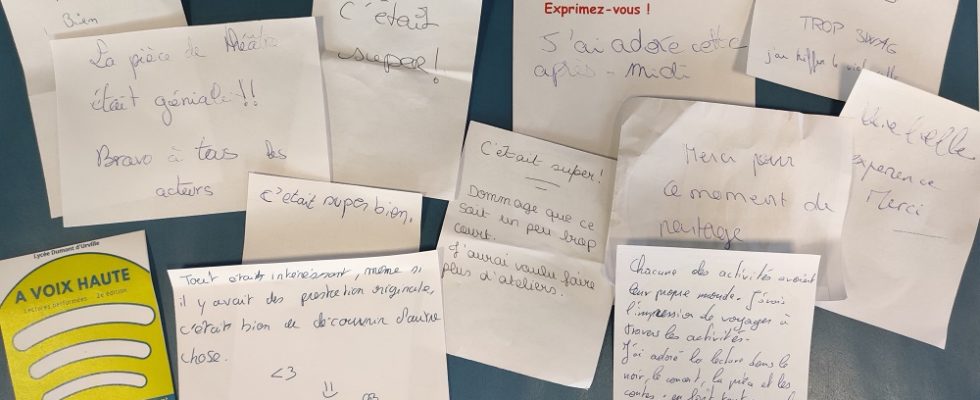 Bien
La pièce de théâtre
était géniale!!
Bravo à tous les
acteurs
C'était
super!
Exprimez-vous !
J'ai adoré cette
après-midi
TROP SWAG
j'ai kiffer le
Une belle
experience
Merci
C'était super bien.
C'était super!
Dommage que ce
soit un peu trop
court.
J'aurai voulu faire
plus d'ateliers.
Merci pour
ce moment de
partage
Lycée Dumont d'Urville
A VOIX HAUTE
Lectures performées 2e édition
Tout etait intéréssant, même si
il y avait des prestation originale,
c'était bien de découvrir d'autre
chose.
<3
Chacune des activités avaient
leur propre monde. J'avais
l'impression de voyager à
travers les activités.
J'ai adoré la lecture dans le
noir, le concert, la pièce et les
contes. en fait tout